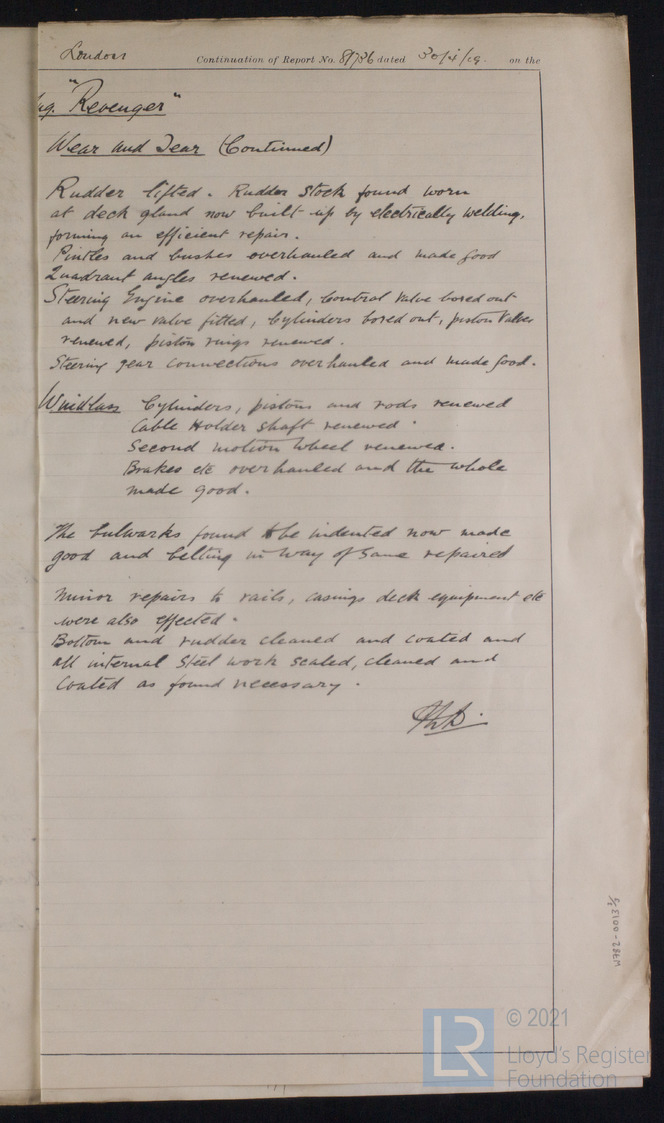 London Continuation of Report No. 81736 dated 30/4/19. on the
"Revenger"
Wear and Tear (Continued)
Rudder lifted. Rudder Stock found worn
at deck gland now built up by electrically welding,
forming an efficient repair.
Pintles and bushes overhauled and made good
Quadrant angles renewed.
Steering Engine overhauled, Control Valve bored out
and new valve fitted, Cylinders bored out, piston valves
renewed, piston rings renewed.
Steering gear connections overhauled and made good.
Windlass Cylinders, pistons and rods renewed
Cable Holder shaft renewed.
Second motion wheel renewed.
Brakes etc overhauled and the whole
made good.
The bulwarks found to be indented now made
good and belting in way of same repaired
Minor repairs to rails, casings deck equipment etc
were also effected.
Bottom and rudder cleaned and coated and
all internal Steel work scaled, cleaned and
Coated as found necessary.
LR © 2021
Lloyd's Register
Foundation